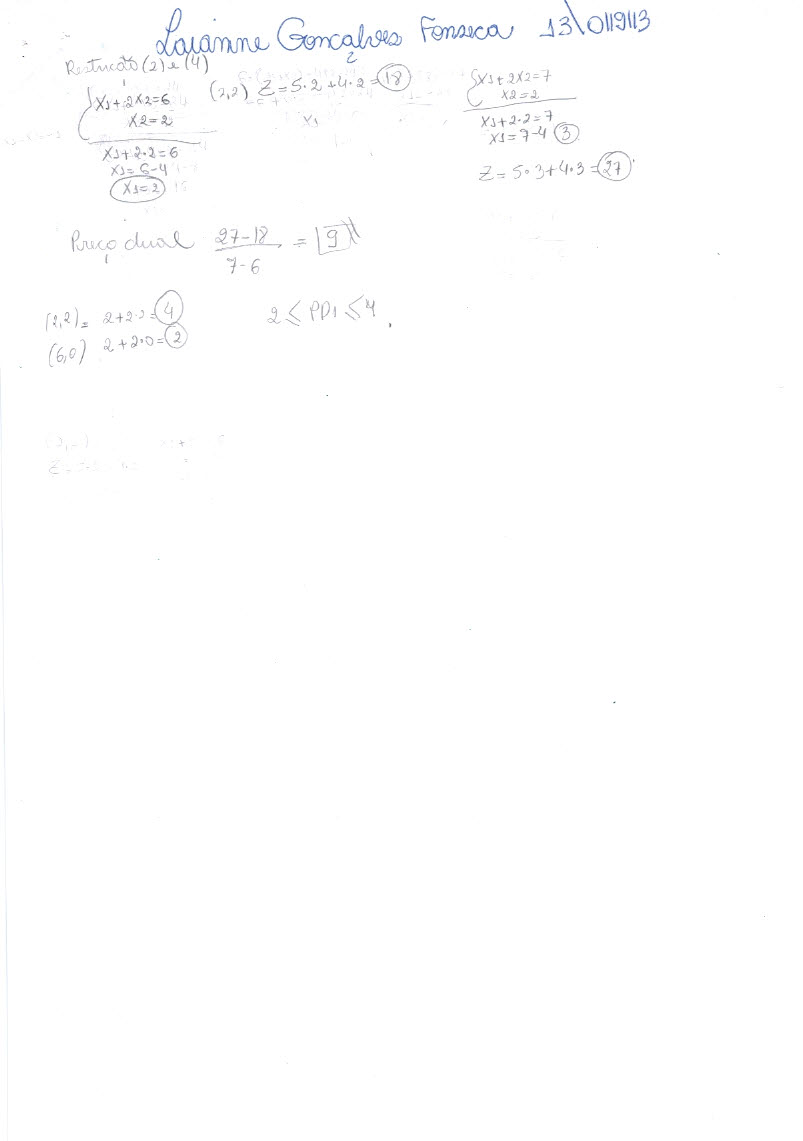 Laianne Gonçalves Fonseca 13\0119113
Restrição (2) e (4)
x1+2x2=6
x2=2
x1+2·2=6
x1=6-4
x1=2
(2,2) Z=5·2+4·2=18
x1+2x2=7
x2=2
x1+2·2=7
x1=7-4 3
Z=5·3+4·3=27
Preço dual 27-18 / 7-6 = 9
(2,2)= 2+2·2=4
(6,0) 2+2·0=2
2 ≤ PD1 ≤ 4